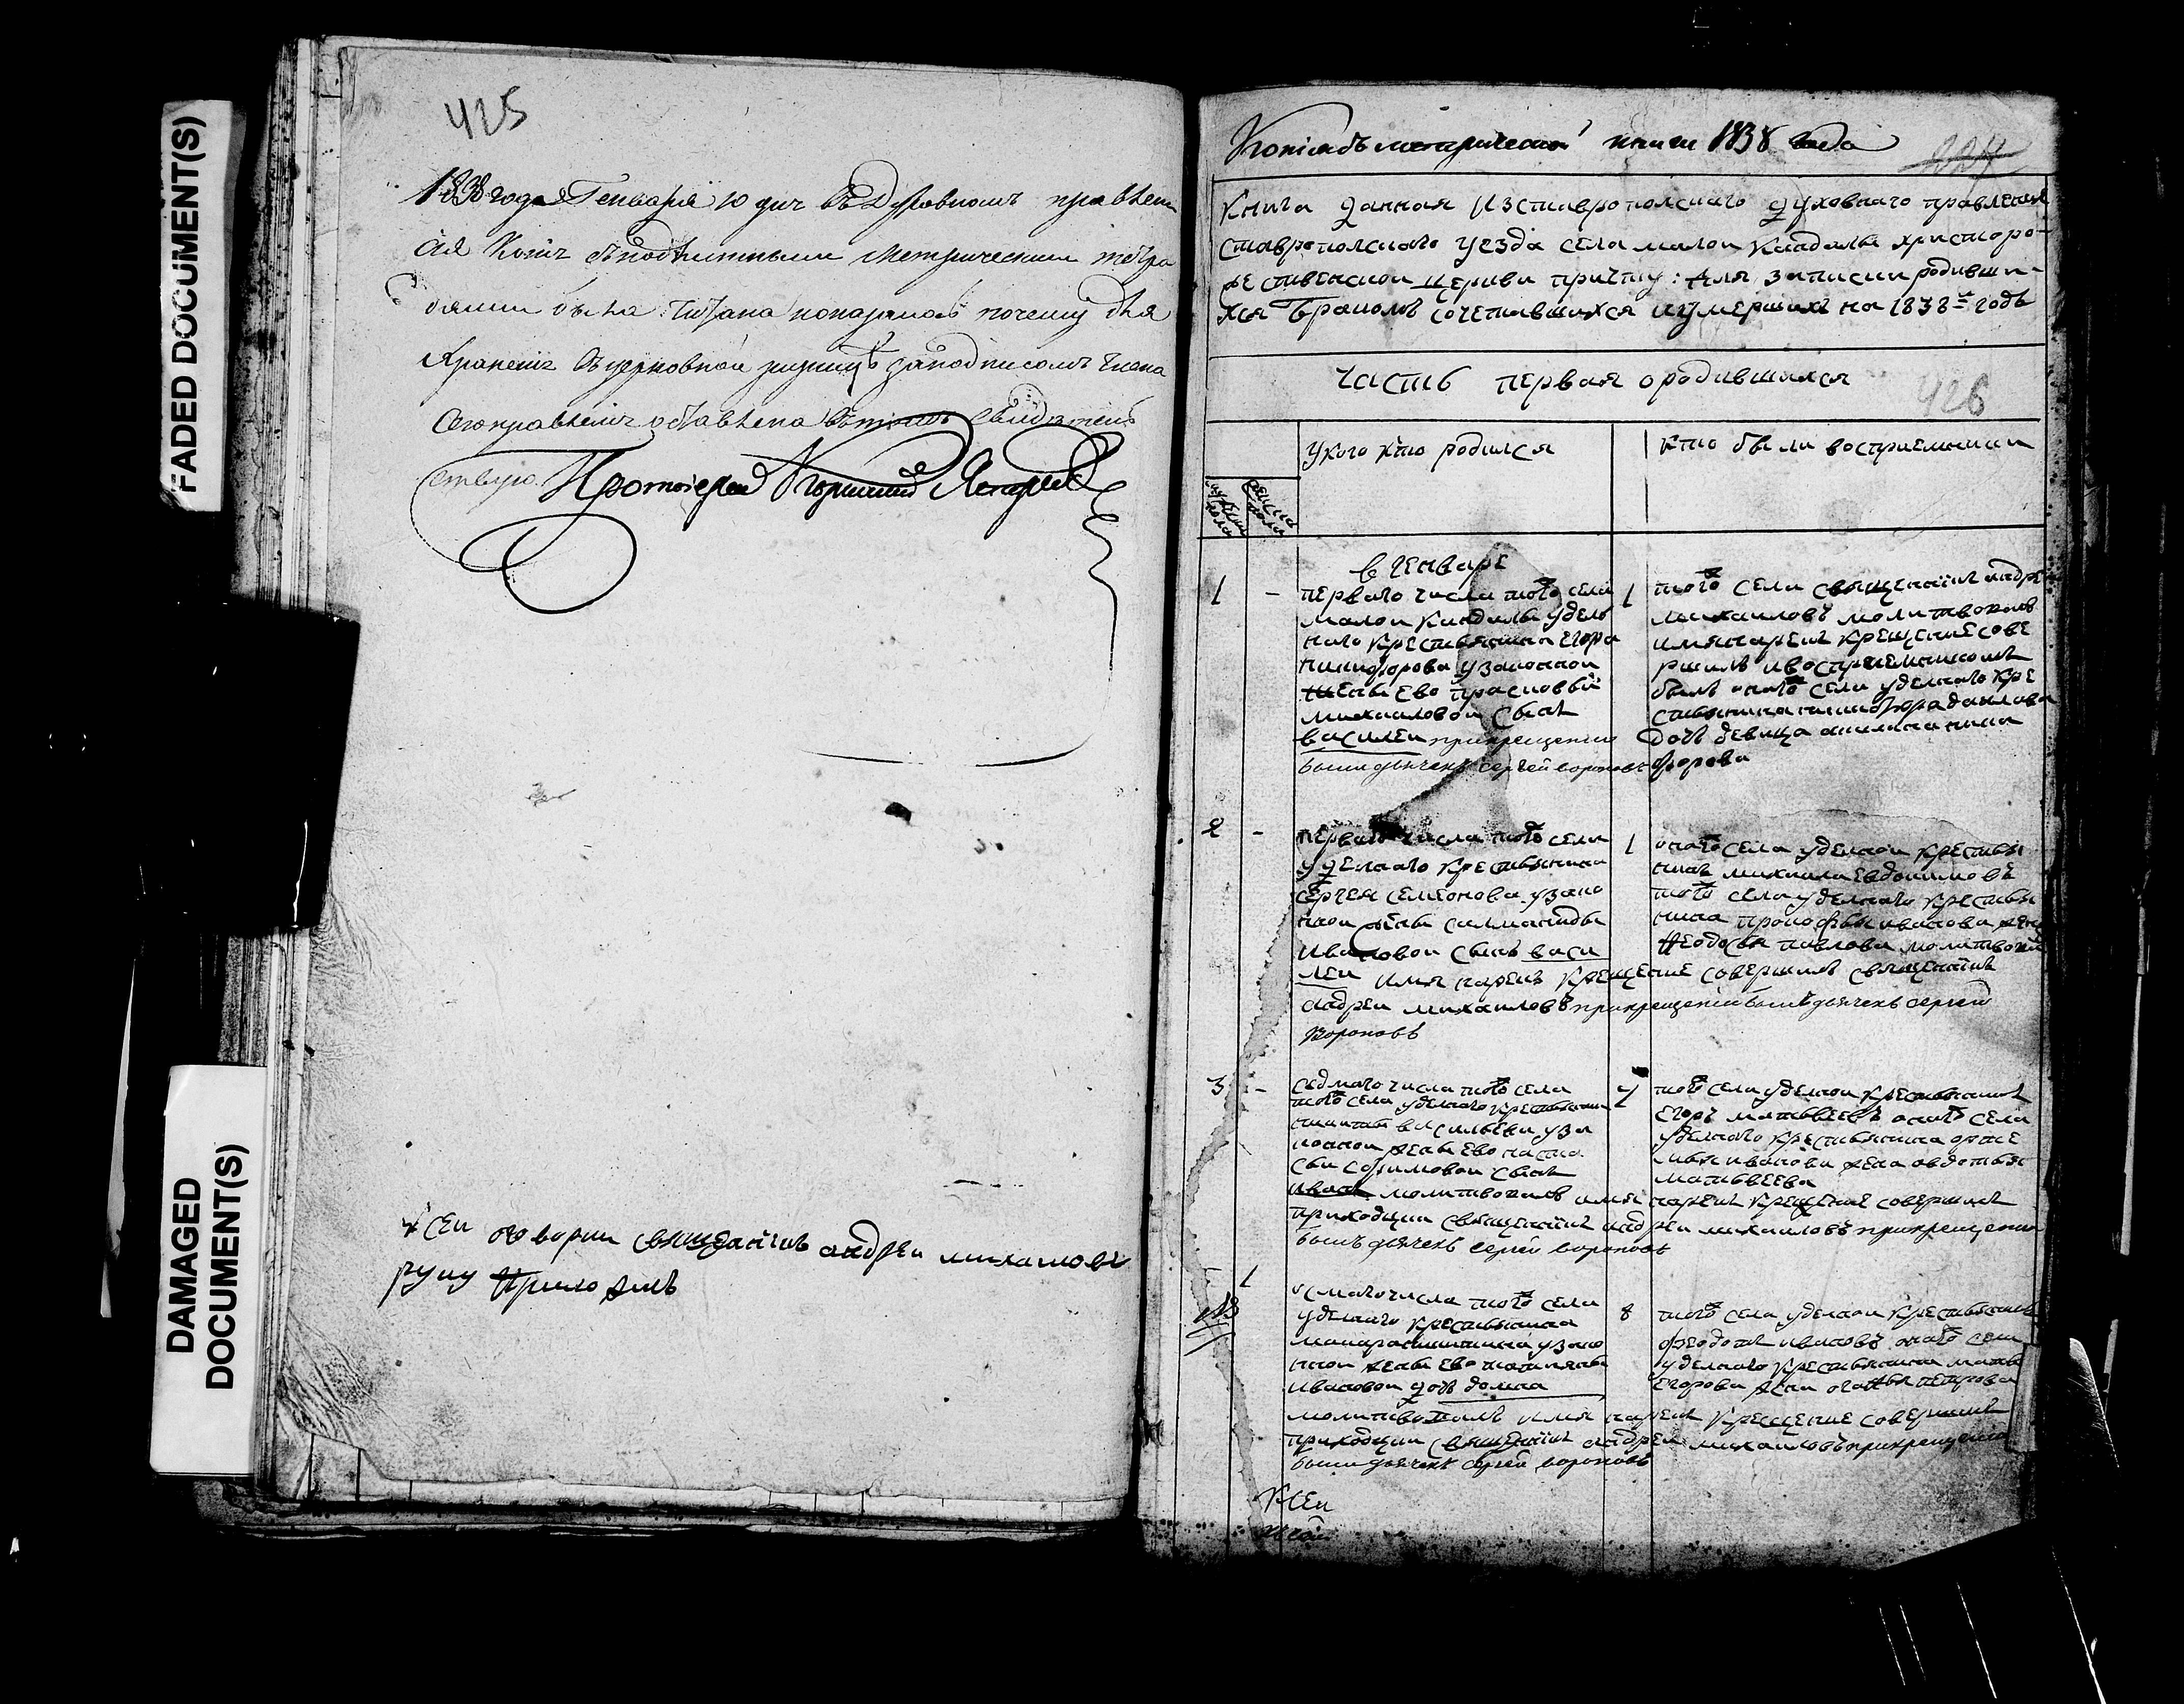 FADED DOCUMENT(S)
DAMAGED
DOCUMENT(S)
425
1838 года Генваря 10 дня въ Духовномъ правлени
сия Копия съ подлинными Метрическими тетра
дями была читана почему для
Хранения въ церковной ризницѣ за подписомъ члена
сего правления оставлена въ томъ свидѣтель
ствую. Протоіерей
К сеи священникъ андреи михаиловъ
руку приложилъ
Копія съ метрической книги 1838 года
224
Книга данная изставропольскаго духовнаго правления
ставропольскаго уезда села малои кандалы христоро-
ждественскои церкви причту: для записки родивши-
хся браколъ сочетавшихся иумершихъ на 1838-й годъ
часть первая ородившихся
426
укого кто родился
кто были восприемники
мужеска пола
женска пола
в генваре
1 - перваго числа того села
малои кандалы удель
наго крестьянина егора
никифорова узаконнои
жены ево прасковьи
михаиловои сынъ
василеи прикрещении
былъ дьячекъ сергей вороновъ
1 того села священникъ андреи
михаиловъ молитвовалъ
имянарекъ крещение сове
ршилъ ивосприемникомъ
былъ онаго села уделнаго кре
стьянина никифора данилова
дочь девица акилина ники
форова
2 - перваго числа того села
уделнаго крестьянина
сергея семенова узако
ннои жены
ивановои сынъ васи
леи имя нарекъ крещение совершилъ священникъ
андреи михаиловъ прикрещении былъ дьячекъ сергей
Вороновъ
1 онаго села уделнои крестья
нинъ михаила евдокимовъ
того села уделнаго крестья
нина прокофья иванова жена
феодосья павлова молитвовалъ
3 - седмаго числа того села
того села уделнаго крестьянина
васильева уза
коннои жены ево наста
сьи ефимовои сынъ
иванъ молитвовалъ имя нарекъ крещение совершилъ
приходцки священникъ андреи михаиловъ прикрещении
былъ дьячекъ сергей вороновъ
7 того села уделнои крестьянинъ
егоръ матвеевъ онаго села
уделнаго крестьянина
иванова жена авдотья
матвеева
- 1 осмаго числа того села
уделнаго крестьянина
узако
ннои жены ево татияны
ивановои дочь домна
молитвовалъ имя нарекъ крещение совершилъ
приходцки священникъ андреи михаиловъ прикрещении
былъ дьячекъ сергей вороновъ
8 того села уделнои крестьянинъ
феодотъ ивановъ онаго села
уделнаго крестьянина
егорова жена петрова
К сеи